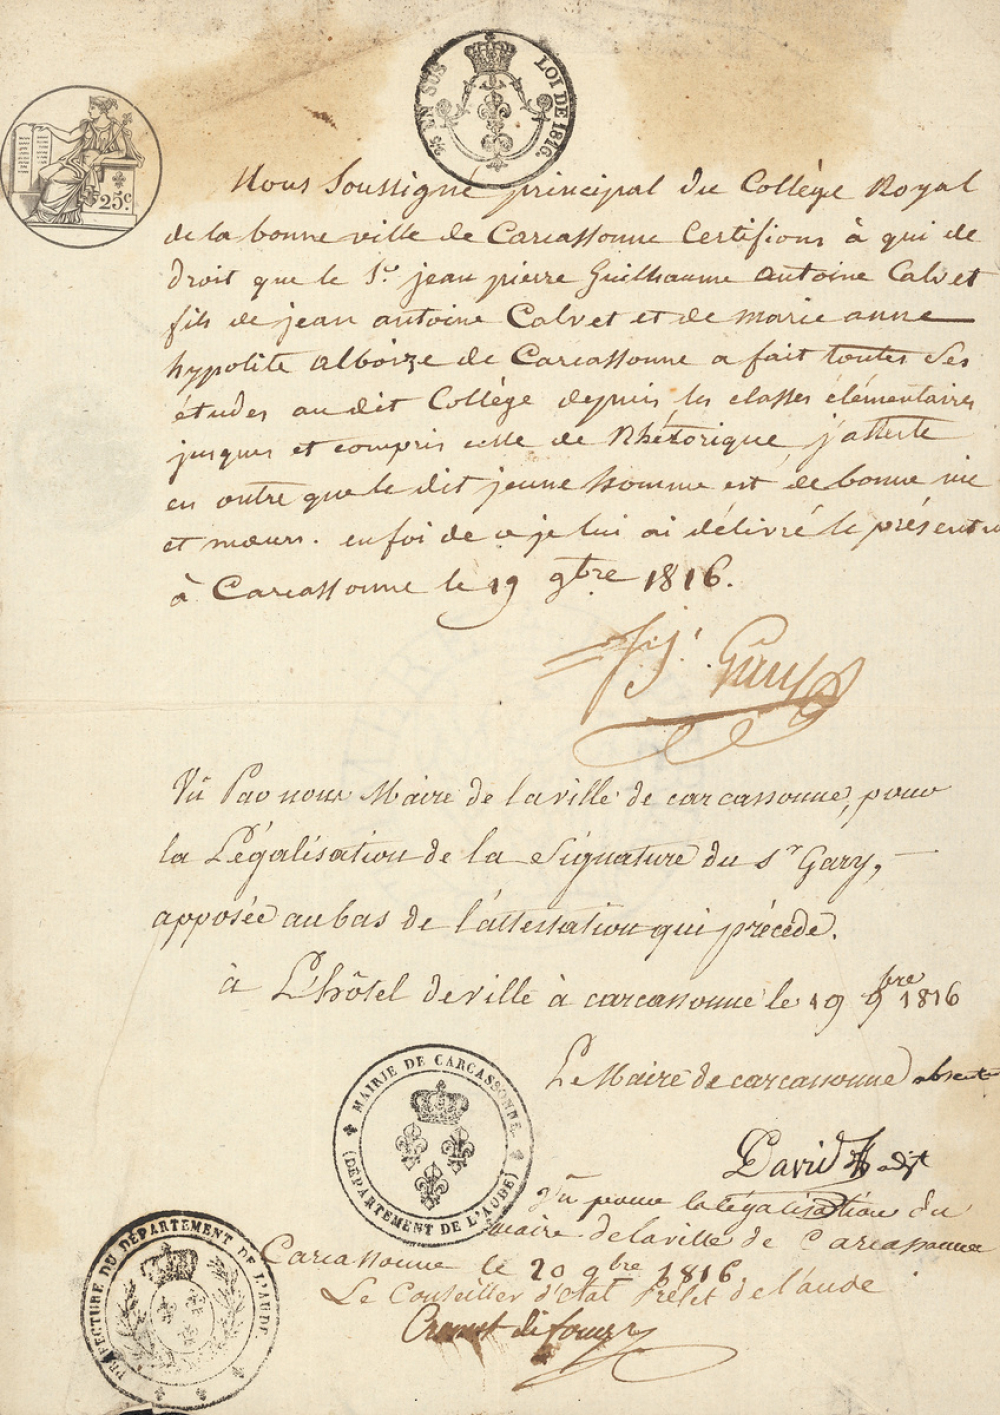 2es EN SUS
LOI DE 1816.
25c.
Nous Soussigné principal du Collège Royal
de la bonne ville de Carcassonne Certifions à qui de
droit que le Sr. jean pierre Guilhaume antoine Calvet
fils de jean antoine Calvet et de marie anne
hypolite alboize de Carcassonne a fait toutes ses
études au dit Collège depuis les classes élémentaires
jusques et compris celle de Rhétorique, j'atteste
en outre que le dit jeune homme est de bonne vie
et mœurs. en foi de ce je lui ai délivré le présent
à Carcassonne le 19 9bre 1816.
Gary
Vu Par nous Maire de la ville de carcassonne, pour
la Légalisation de la Signature du Sr Gary,
apposée au bas de l'attestation qui précède.
à L'hôtel de ville à carcassonne le 19 9bre 1816
Le Maire de carcassonne absent
David adjt
MAIRIE DE CARCASSONNE.
(DÉPARTEMENT DE L'AUDE)
Vu pour la légalisation du
maire de la ville de Carcassonne
Carcassonne le 20 9bre 1816.
Le Conseiller d'état Préfet de l'aude
PRÉFECTURE DU DÉPARTEMENT DE L'AUDE